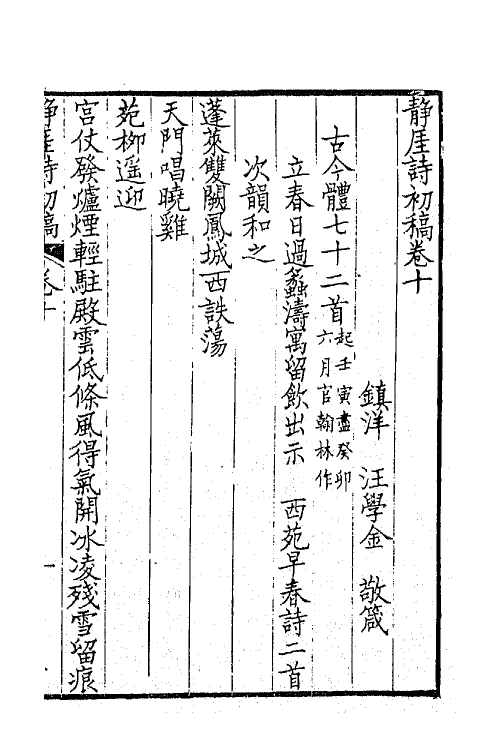 靜厓詩初稿卷十
鎮洋　汪學金　敬箴
古今體七十二首起壬寅盡癸卯六月官翰林作
立春日過蠡濤寓留飲出示　西苑早春詩二首
次韻和之
蓬萊雙闕鳳城西詄蕩
天門唱曉雞
苑柳遥迎
宮仗發爐煙輕駐殿雲低條風得氣開冰凌殘雪留痕
靜厓詩初稿　卷十　一